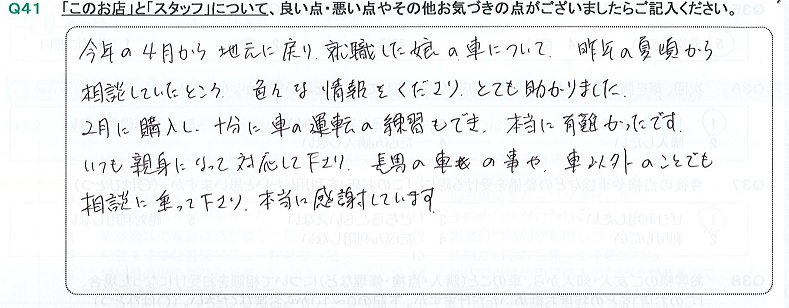 Q41 「このお店」と「スタッフ」について、良い点・悪い点やその他お気づきの点がございましたらご記入ください。
今年の4月から地元に戻り、就職した娘の車について、昨年の夏頃から
相談していたところ、色々な情報をくださり、とても助かりました。
2月に購入し、十分に車の運転の練習もでき、本当に有難かったです。
いつも親身になって対応して下さり、長男の車の事や、車以外のことでも
相談に乗って下さり、本当に感謝しています